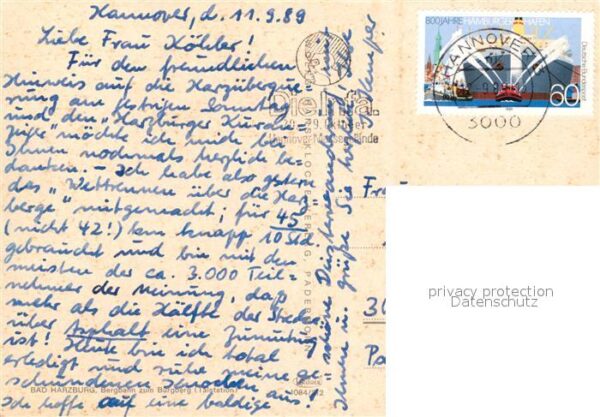 Hannover, d. 11.9.89
Liebe Frau Köhler!
Für den freundlichen
Hinweis auf die Harzüberque-
rung am gestrigen Sonntag
und den "Harzburger
möchte ich mich bei
Ihnen nochmals herzlich be-
danken. – Ich habe also gestern
des "Wettrennen über die Harz-
berge" mitgemacht; für 45
(nicht 42!) km knapp 10 Std
gebraucht und bin mit den
meisten der ca. 3.000 Teil-
nehmer der Meinung, daß
mehr als die Hälfte der Strecke
über Asphalt eine Zumutung
ist! Heute bin ich total
erledigt und ruhe meine ge-
schundenen Knochen aus
Ich hoffe auf eine baldige
schöne
Ihnen in grüße Sie
BAD HARZBURG, Bergbahn zum Burgberg (Talstation)
PADERBORN
800 JAHRE HAMBURGER HAFEN
Deutsche Bundespost
60
HANNOVER
3000
Hannover Messegelände
Frau
30
privacy protection
Datenschutz